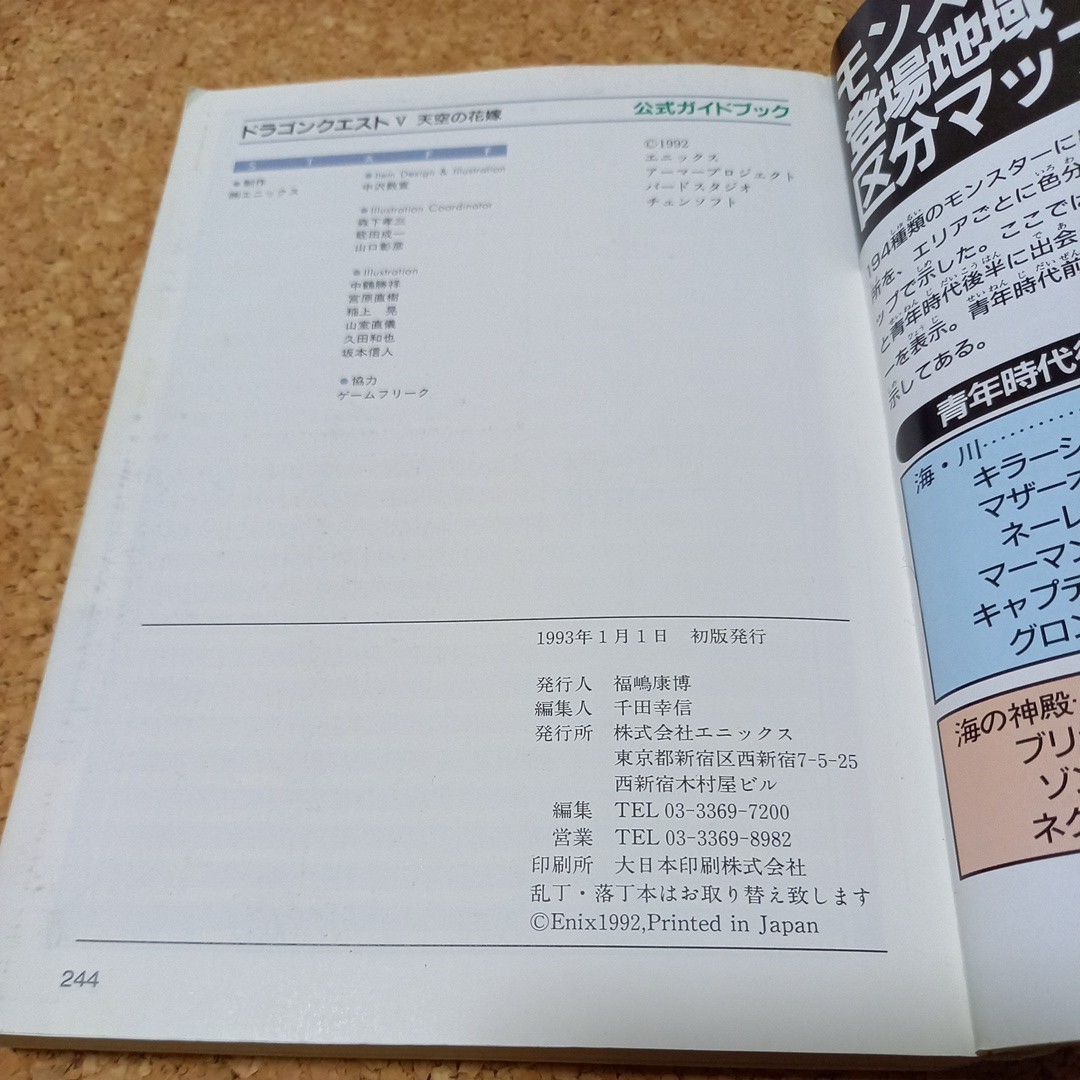 ドラゴンクエスト V 天空の花嫁
公式ガイドブック
STAFF
●制作
㈱エニックス
●Item Design & Illustration
中沢数宣
●Illustration Coordinator
森下孝三
蛭田成一
山口彰彦
●Illustration
中鶴勝祥
宮原直樹
稲上 晃
山室直儀
久田和也
坂本信人
●協力
ゲームフリーク
©1992
エニックス
アーマープロジェクト
バードスタジオ
チュンソフト
1993年1月1日 初版発行
発行人 福嶋康博
編集人 千田幸信
発行所 株式会社エニックス
東京都新宿区西新宿7-5-25
西新宿木村屋ビル
編集 TEL 03-3369-7200
営業 TEL 03-3369-8982
印刷所 大日本印刷株式会社
乱丁・落丁本はお取り替え致します
©Enix1992,Printed in Japan
244
モンス
登場地域
区分マッ
194種類のモンスターに
所を、エリアごとに色分
ップで示した。ここでは
と青年時代後半に出会
ーを表示。青年時代前
示してある。
青年時代
海・川…………
キラーシ
マザーオ
ネーレ
マーマン
キャプテ
グロン
海の神殿…
ブリ
ゾン
ネク